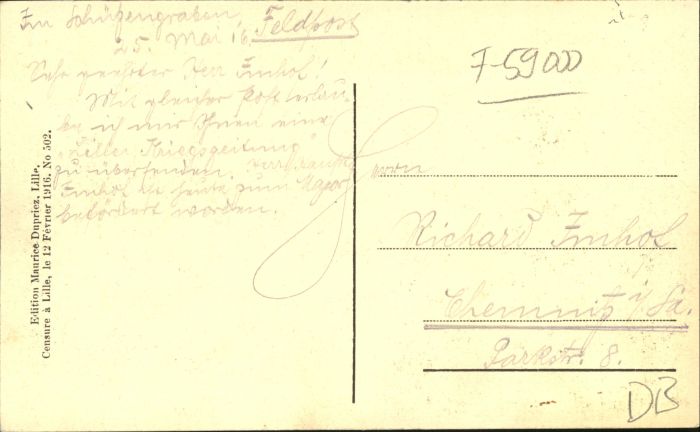 Im Schützengraben,
25. Mai 16.
Feldpost
Sehr geehrter Herr Imhof!
Mit gleicher Post erlau-
be ich mir Ihnen eine
„Liller Kriegszeitung"
zu übersenden. Herr
Imhof ist heute zum Major
befördert worden.
Edition Maurice Dupriez, Lille.
Censure à Lille, le 12 Février 1916. No 502.
7-59000
Herrn
Richard Imhof
Chemnitz i/Sa.
Parkstr. 8.
DB